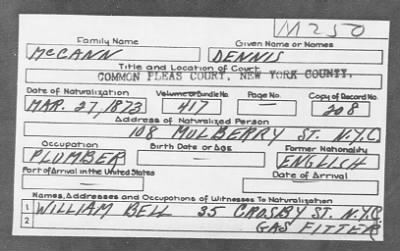 M250
Family Name Given Name or Names
McCANN DENNIS
Title and Location of Court
COMMON PLEAS COURT, NEW YORK COUNTY.
Date of Naturalization Volume or Bundle No. Page No. Copy of Record No.
MAR. 27, 1873 417 — 208
Address of Naturalized Person
108 MULBERRY ST. N.Y.C.
Occupation Birth Date or Age Former Nationality
PLUMBER — ENGLICH
Port of Arrival in the United States Date of Arrival
— —
Names, Addresses and Occupations of Witnesses To Naturalization
1 WILLIAM BELL 35 CROSBY ST. N.Y.C.
2 GAS FITTER